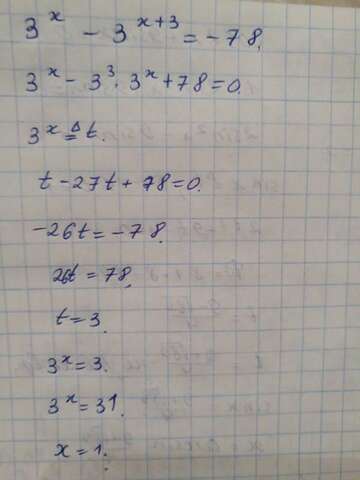 3ˣ - 3ˣ⁺³ = -78.
3ˣ - 3³ · 3ˣ + 78 = 0.
3ˣ ≜ t.
t - 27t + 78 = 0.
-26t = -78.
26t = 78.
t = 3.
3ˣ = 3.
3ˣ = 31.
x = 1.